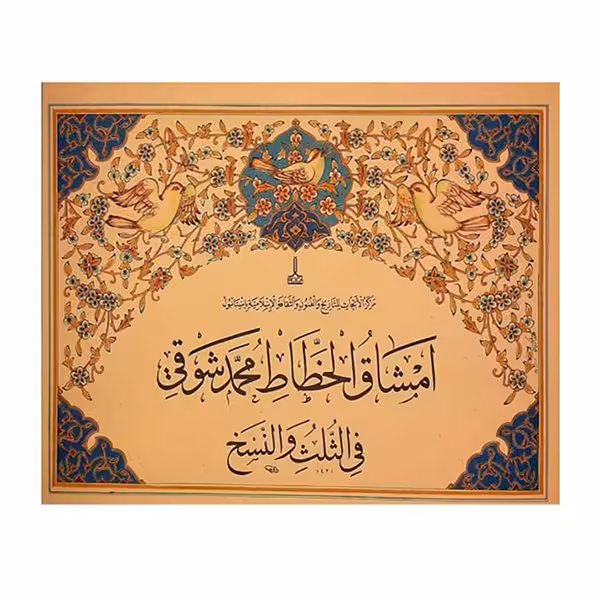 مركز الأبحاث للتاريخ والفنون والثقافة الإسلامية باستانبول
امشاق الخطاط محمد شوقي
في الثلث والنسخ